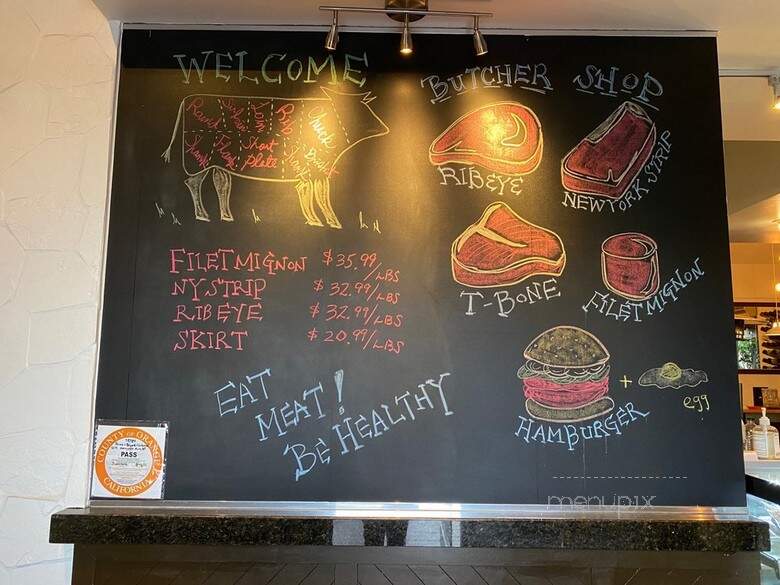 WELCOME
BUTCHER SHOP
Round
Sirloin
Loin
Rib
Chuck
Shank
Flank
Short
Plate
Shank
Brisket
RIBEYE
NEW YORK STRIP
T-BONE
FILET MIGNON
FILET MIGNON $35.99/LBS
NY STRIP $32.99/LBS
RIB EYE $32.99/LBS
SKIRT $20.99/LBS
EAT
MEAT!
BE HEALTHY
HAMBURGER
+
egg
COUNTY OF ORANGE
PASS
CALIFORNIA
menupix